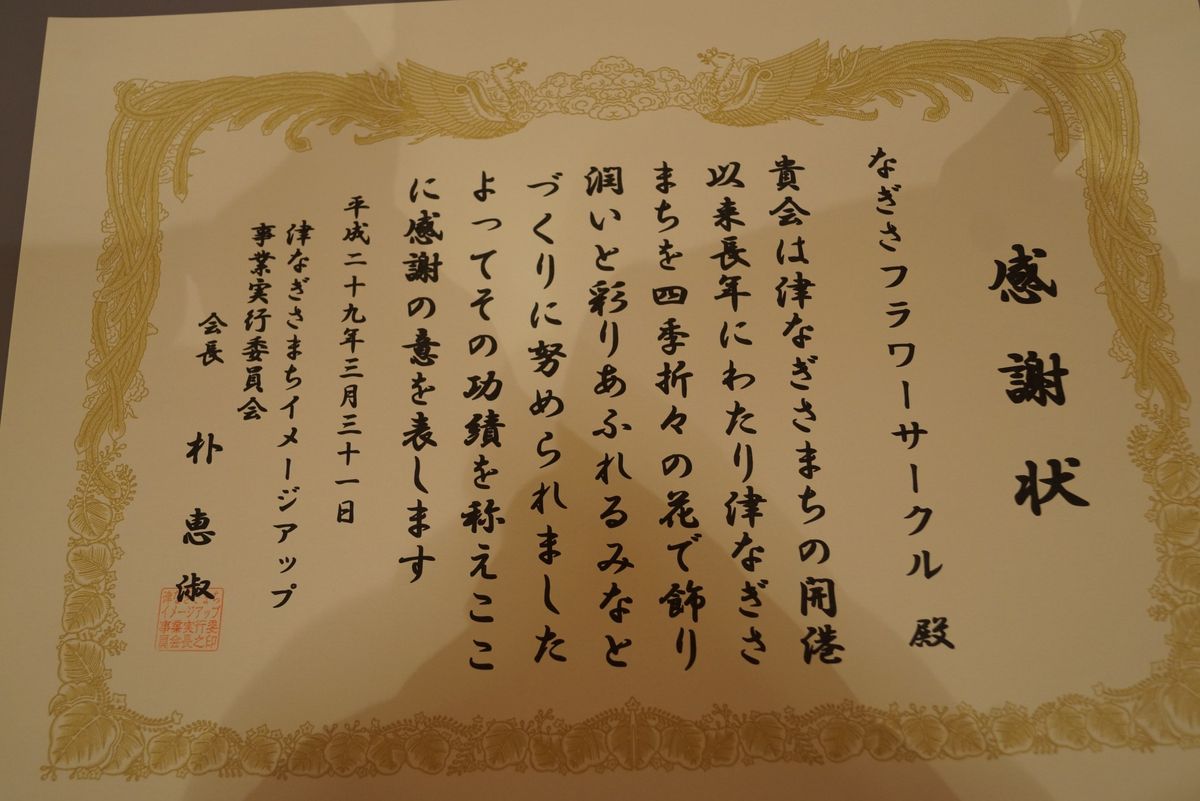 感謝状
なぎさフラワーサークル 殿
貴会は津なぎさまちの開港
以来長年にわたり津なぎさ
まちを四季折々の花で飾り
潤いと彩りあふれるみなと
づくりに努められました
よってその功績を称えここ
に感謝の意を表します
平成二十九年三月三十一日
津なぎさまちイメージアップ
事業実行委員会
会長 朴恵淑
イメージアップ
事業実行委
員会長之印